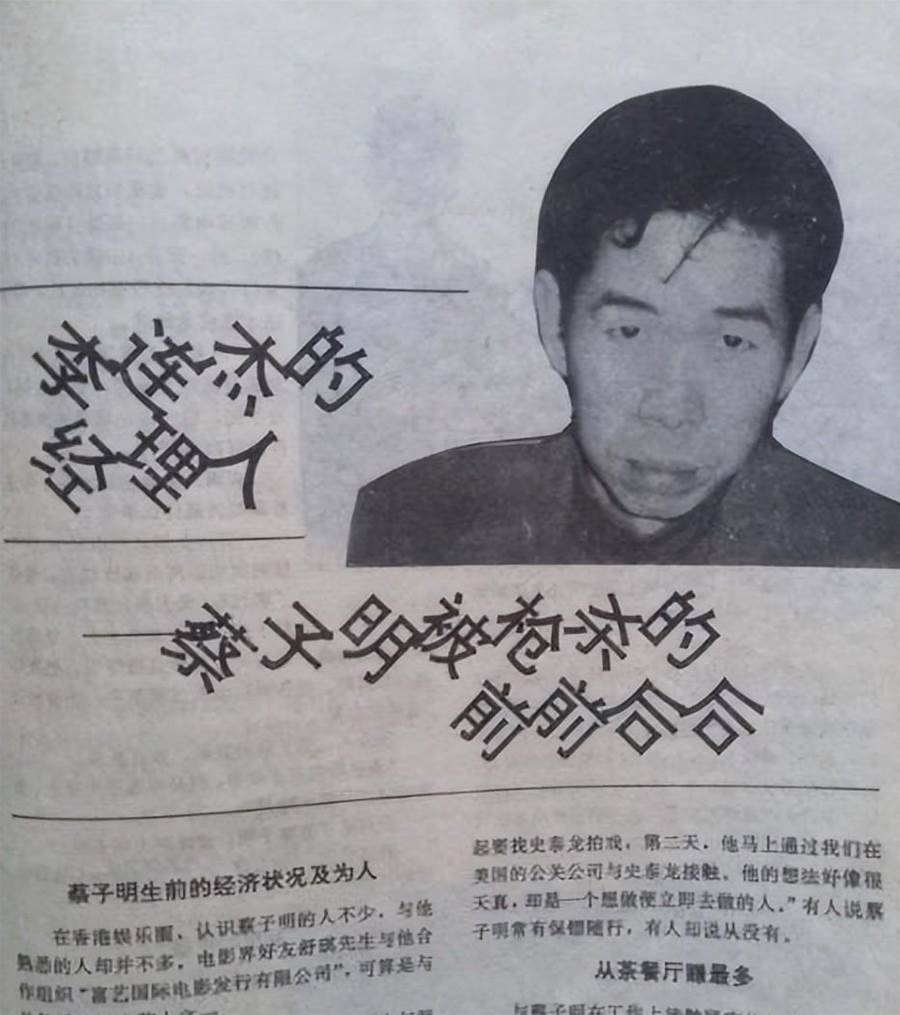 李连杰的
经理人
——蔡子明被枪杀的
前前后后
蔡子明生前的经济状况及为人
在香港娱乐圈，认识蔡子明的人不少，与他
熟悉的人却并不多，电影界好友舒琪先生与他合
作组织“富艺国际电影发行有限公司”，可算是与
起要找史泰龙拍戏，第二天，他马上通过我们在
美国的公关公司与史泰龙接触。他的想法好像很
天真，却是一个想做便立即去做的人。”有人说蔡
子明常有保镖随行，有人却说从没有。
从茶餐厅赚最多